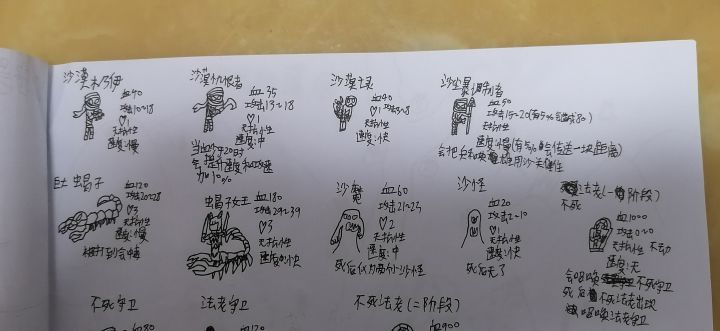 沙漠木乃伊
血40
攻击10~18
♡1
无抗性
速度:慢
沙漠仇恨者
血35
攻击13~18
♡1
无抗性
速度:中
当血少于20时
会提升速度和攻速
加10%
沙漠之灵
血40
攻击3~8
♡1
无抗性
速度:快
沙尘暴调制者
血50
攻击15~20
♡1
无抗性
速度:慢(有5%会传送一块距离)
巨虫蝎子
血120
攻击20~28
♡3
无抗性
速度:慢
被打到会中毒
蝎子女王
血180
攻击29~39
♡3
无抗性
速度:快
沙魔
血60
攻击21~25
♡2
无抗性
速度:中
死后化为两个小沙怪
沙怪
血20
攻击2~10
♡1
无抗性
速度:快
死后无了
法老(一阶段)
不死
血1000
攻击0~0
无抗性 不动
速度:无
会召唤不死守卫
死后不死法老出现
召唤法老守卫
不死守卫
血80
法老守卫
血120
不死法老(二阶段)
血900